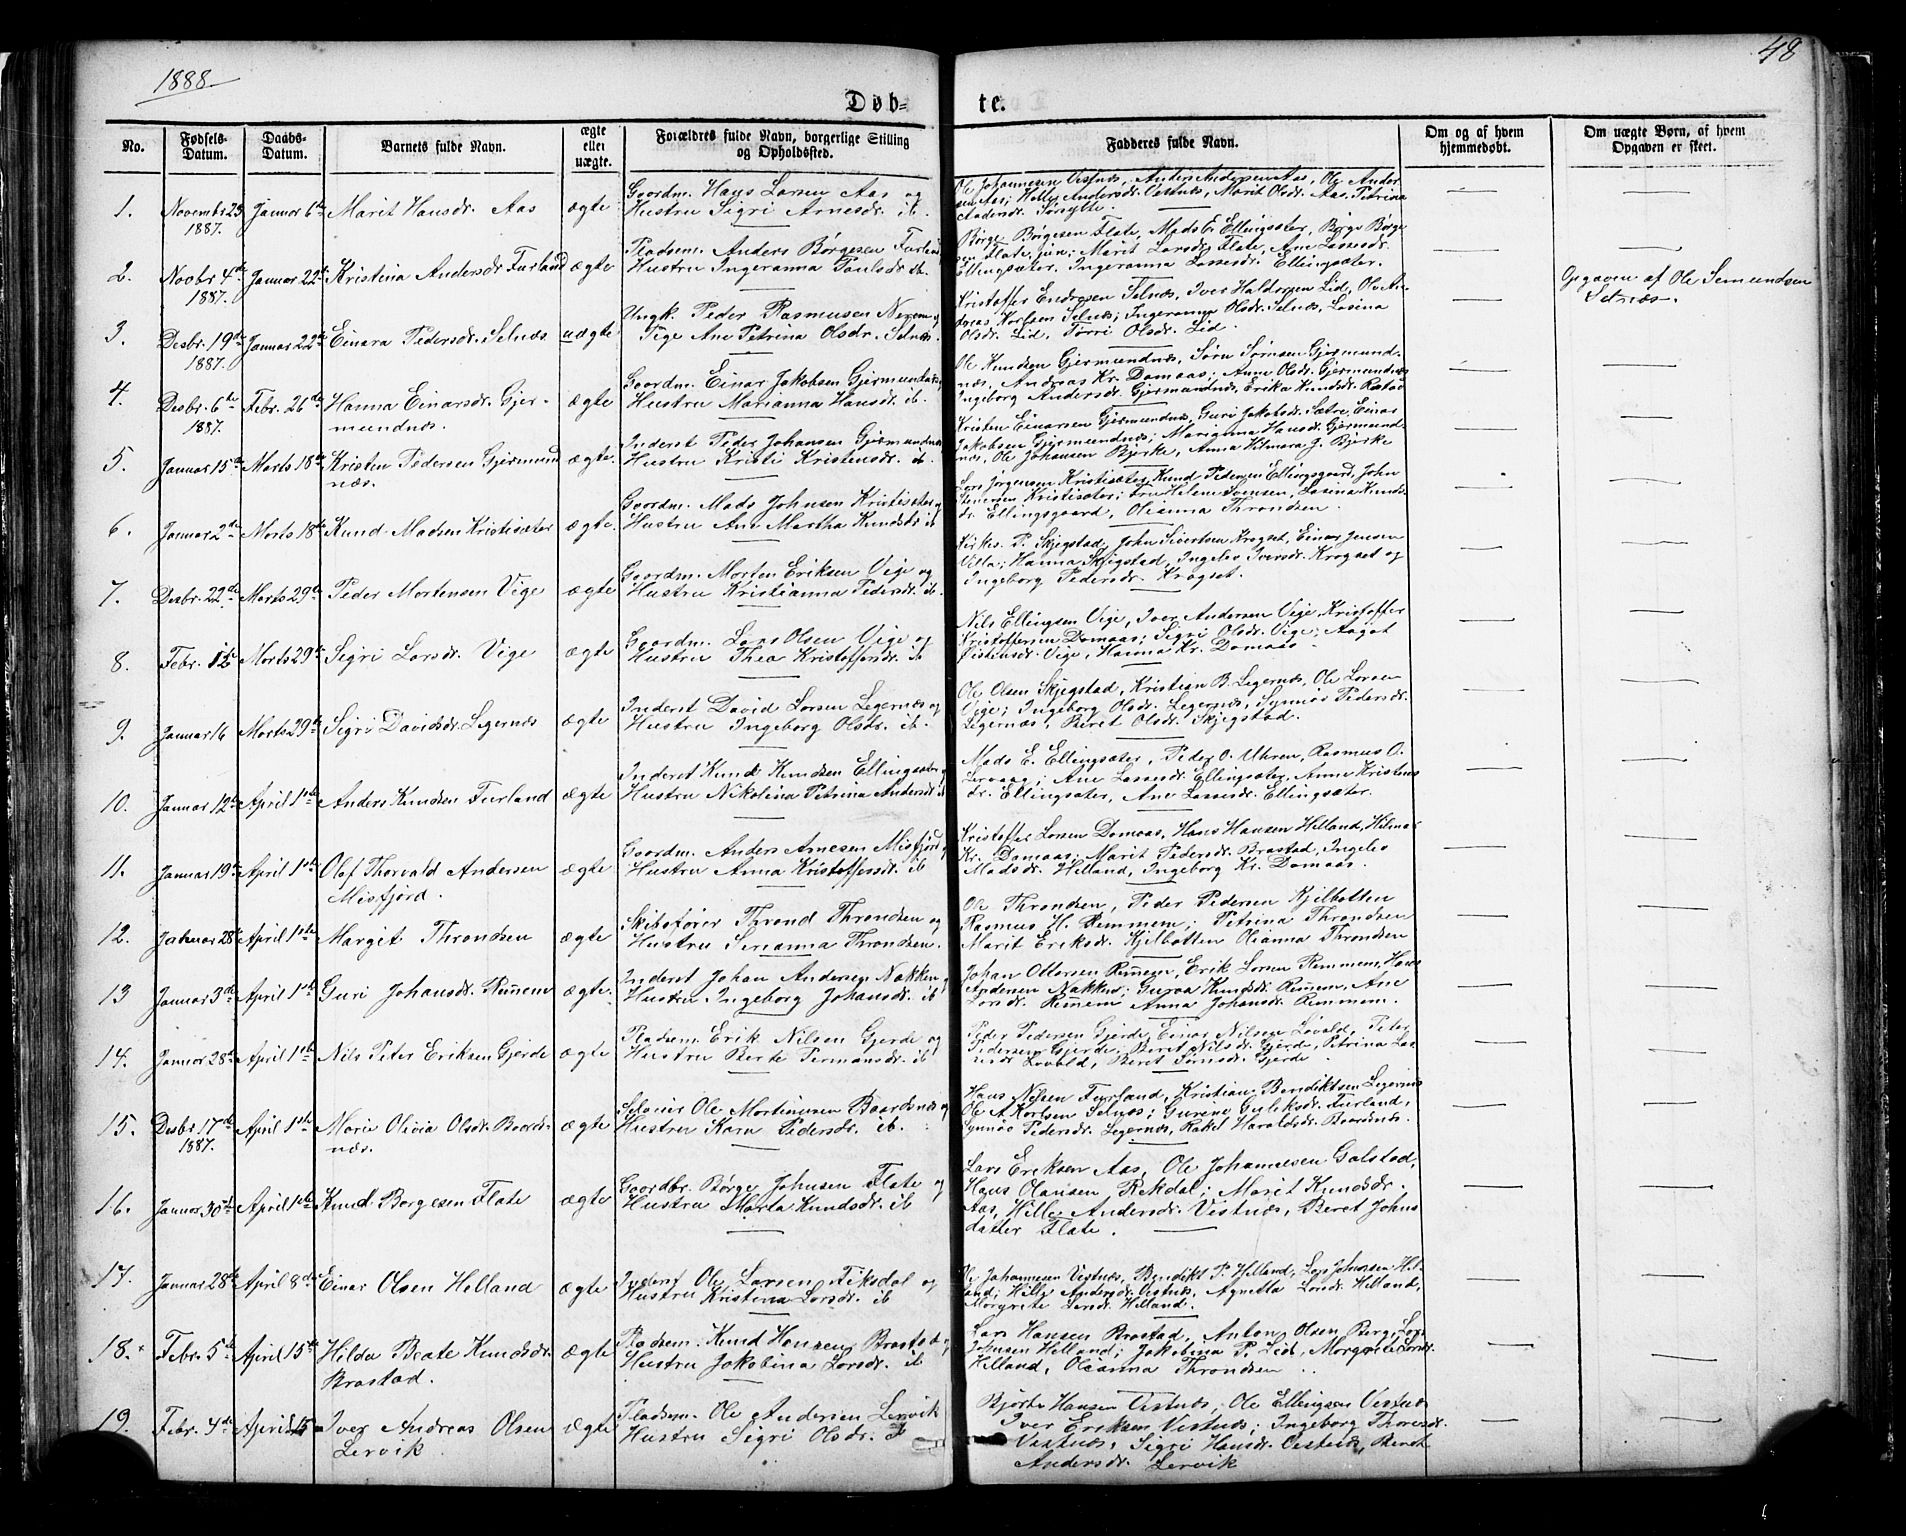 48
1888
Døb-
te.
No.
Fødsels-
Datum.
Daabs-
Datum.
Barnets fulde Navn.
ægte
eller
uægte.
Forældres fulde Navn, borgerlige Stilling
og Opholdssted.
Faddernes fulde Navn.
Om og af hvem
hjemmedøbt.
Om uægte Børn, af hvem
Opgaven er skeet.
1.
Novembr 23
1887.
Januar 6te
Marit Hansdr. Aas
ægte
Gaardm. Hans Larsen Aas og
Hustru Sigri Arnesdr. ib.
Ole Johannesen Vestnes, Anders Andersen Aas, Ole Ander
sen Aas; Hille Andersdr. Vestnes, Marit Olsdr. Aas, Petrina
2.
Novbr 4de
1887.
Januar 22de
Kristina Andersdr Furland
ægte
Pladsm. Anders Børgesen Furland
Hustru Ingeranna Paulsdr. ib.
Børge Børgesen Flate, Mads E. Ellingsæter, Børge Børge
sen Flate, jun; Marit Larsdr. Flate, Ane Lassesdr.
Ellingsæter, Ingeranna Lassesdr. Ellingsæter.
3.
Desbr. 19de
1887.
Januar 22de
Einara Pedersdr. Selnæs
uægte
Ungk. Peder Rasmusen Nerem og
Pige Ane Petrina Olsdr. Selnæs.
Kristoffer Endresen Selnæs, Iver Haldorsen Lid, Ole An
dreas Karlsen Selnæs; Ingeranna Olsdr. Selnæs, Lasina
Olsdr. Lid, Torri Olsdr. Lid.
Opgaven af Ole Semundsen
Selnæs.
4.
Desbr. 6te
1887.
Febr. 26de
Hanna Einarsdr. Gjer-
mundnæs.
ægte
Gaardm. Einar Jakobsen Gjermundnæs
Hustru Marianna Hansdr. ib.
Ole Knudsen Gjermundnæs, Søren Sørnsen Gjermund-
næs, Andreas Kr. Damaas; Anne Olsdr. Gjermundnæs
Ingeborg Andersdr. Gjermundnæs, Erika Knudsdr.
5.
Januar 15de
Marts 18de
Kristen Pedersen Gjermund
næs.
ægte.
Inderst Peder Johansen Gjermundnæs
Hustru Kristi Kristensdr. ib.
Kristen Einarsen Gjermundnæs, Guri Jakobsdr. Sætre, Einar
Jakobsen Gjermundnæs; Marianna Hansdr. Gjermund-
næs, Ole Johansen Bjerke, Anna Hilmara J. Bjerke
6.
Januar 2de
Marts 18de
Knud Madsen Kristisæter
ægte.
Gaardm. Mads Johnsen Kristisæter og
Hustru Ane Martha Knudsdr. ib
Lars Jørgensen Kristisæter, Knud Pedersen Ellingsgaard, John
Kristisæter; Fru Helene Svensen, Lasina Knuds-
dr. Ellingsgaard, Olianna Throndsen.
7.
Desbr. 22de
Marts 29de
Peder Mortensen Vige
ægte
Gaardm. Morten Eriksen Vige og
Hustru Kristianna Pedersdr. ib.
Kirkes. P. Skjegstad, John Sivertsen Kragset, Einar Jensen
Villa; Hanna Skjegstad, Ingeles Iversdr. Kragset og
Ingeborg Pedersdr. Kragset.
8.
Febr. 12
Marts 29de
Sigri Larsdr. Vige
ægte
Gaardm. Lars Olsen Vige og
Hustru Thea Kristoffersdr. ib
Nils Ellingsen Vige, Iver Andersen Vige, Kristoffer
Kristoffersen Damaas; Sigri Olsdr. Vige; Aagot
Eistensdr. Vige, Hanna Kr. Damaas
9.
Januar 16
Marts 29de
Sigri Davidsdr. Legernæs
ægte
Inderst David Larsen Legernæs og
Hustru Ingeborg Olsdr. ib.
Ole Olsen Skjegstad, Kristian B. Legernæs, Ole Larsen
Vige; Ingeborg Olsdr. Legernæs, Synnøv Pedersdr.
Legernæs, Beret Olsdr. Skjegstad.
10.
Januar 12te
April 1ste
Anders Knudsen Furland
ægte
Inderst Knud Knudsen Ellingsæter og
Hustru Nikolina Petrina Andersdr. ib
Mads E. Ellingsæter, Peder O. Uhren, Rasmus O.
Lervaag; Ane Lassesdr. Ellingsæter, Anne Kristens
dr. Ellingsæter, Ane Lassesdr. Ellingsæter.
11.
Januar 19de
April 1ste
Olaf Thorvald Andersen
Misfjord.
ægte
Gaardm. Anders Arnesen Misfjord og
Hustru Anna Kristoffersdr. ib
Kristoffer Larsen Damaas, Hans Hansen Helland, Hilmar
Kr. Damaas; Marit Pedersdr. Brastad, Ingeles
Madsdr. Helland, Ingeborg Kr. Damaas.
12.
Januar 28de
April 1ste
Margit Throndsen
ægte
Skibsfører Thrond Throndsen og
Hustru Serianna Throndsen.
Ole Throndsen, Peder Pedersen Kjelbotten
Rasmus H. Remmem; Petrina Throndsen
Marit Eriksdr. Kjelbotten Olianna Throndsen
13
Januar 3de
April 1ste
Guri Johansdr. Remem
ægte.
Inderst Johan Andersen Nakken og
Hustru Ingeborg Johansdr. ib
Johan Ottersen Remem, Erik Larsen Remmem, Hans
Andersen Nakken; Guroa Knudsdr. Remem, Ane
Larsdr. Remem Anna Johansdr. Remmem.
14.
Januar 28de
April 1ste
Nils Peter Eriksen Gjerde
ægte
Pladsem. Erik Nilsen Gjerde og
Hustru Berte Permansdr. ib
Peder Pedersen Gjerde, Einar Nilsen Lovald, Peter
Pedersen Gjerde; Beret Nilsdr. Gjerde, Petrina Las
Lovald, Beret Sørnsdr. Gjerde
15.
Desbr. 17de
1887.
April 1ste
Marie Olivia Olsdr. Baards-
næs.
ægte
Selveier Ole Mortinusen Baardsnæs og
Hustru Karn Pedersdr. ib.
Hans Nilsen Furland, Kristian Bendiktsen Legernæs
Ole A. Karlsen Selnæs; Gurene Guleksdr. Furland,
Synnøv Pedersdr. Legernæs, Rakel Haraldsdr. Baardsnæs.
16.
Januar 30te
April 1ste
Knud Børgesen Flate
ægte
Gaardbr. Børge Johnsen Flate og
Hustru Marta Knudsdr. ib
Lars Eriksen Aas, Ole Johannesen Galstad,
Hans Olausen Rekdal; Marit Knudsdr.
Aas, Hille Andersdr. Vestnæs, Beret Johns
datter Flate.
17.
Januar 28de
April 8de
Einar Olsen Helland
ægte
Inderst Ole Larsen Fiksdal og
Hustru Kristina Larsdr. ib
Ole Johannesen Vestnæs, Bendikt P. Helland, Lars Johnsen Hel-
land; Hille Andersdr. Vestnæs, Agnetta Larsdr. Helland,
Margrete Larsdr. Helland.
18.
Febr. 5te
April 15de
Hilda Beate Knudsdr.
Brastad.
ægte
Pladsem. Knud Hansen Brastad og
Hustru Jakobina Larsdr. ib
Lars Hansen Brastad, Anton Olsen Berg, Lars
Johnsen Helland; Jakobina P. Lid, Margrete Larsdr.
Helland, Olianna Throndsen.
19.
Febr. 4de
April 15
Iver Andreas Olsen
Lervik.
ægte
Pladsem. Ole Andersen Lervik
Hustru Sigri Olsdr.
Bjørte Hansen Vestnæs, Ole Ellingsen Vestnæs
Iver Eriksen Vestnæs; Ingeborg Thoresdr.
Vestnæs, Sigri Hansdr. Vestnæs, Beret
Andersdr. Lervik